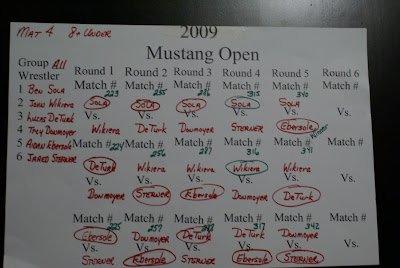 MAT 4 8+ UNDER 2009
Mustang Open
Group All
Wrestler Round 1 Round 2 Round 3 Round 4 Round 5 Round 6
1 Ben Sola Match # 223 Match # 255 Match # 286 Match # 315 Match # 340 Match #
2 John Wikiera SOLA SOLA SOLA SOLA SOLA
3 Lucas DeTurk Vs. Vs. Vs. Vs. Vs. Vs.
4 Trey Dowmoyer Wikiera DeTurk Dowmoyer STERNER Ebersole
5 Aidan Ebersole Match # 224 Match # 256 Match # 287 Match # 316 Match # 341 Match #
6 Jared Sterner DeTurk Wikiera Wikiera Wikiera Wikiera
Vs. Vs. Vs. Vs. Vs. Vs.
Dowmoyer STERNER Ebersole Dowmoyer DeTurk
Match # 225 Match # 257 Match # 288 Match # 317 Match # 342 Match #
Ebersole Dowmoyer DeTurk DeTurk Dowmoyer
Vs. Vs. Vs. Vs. Vs. Vs.
STERNER Ebersole STERNER Ebersole STERNER